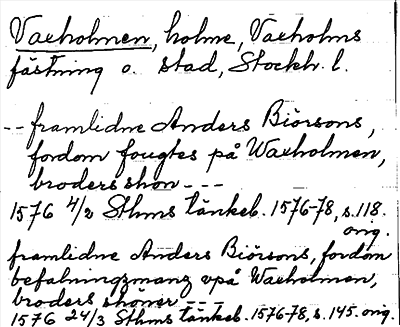 Vaxholmen, holme, Vaxholms
fästning o. stad, Stockh. l.
-- framlidne Anders Biörsons,
fordom fougtes på Waxholmen,
broders shon - - -
1576 4/2 Sthms tänkeb. 1576-78, s. 118.
orig.
framlidne Anders Biörsons, fordom
befalningzmanz vpå Waxholmen,
broders shöner - - -
1576 24/3 Sthms tänkeb. 1576-78, s. 145. orig.